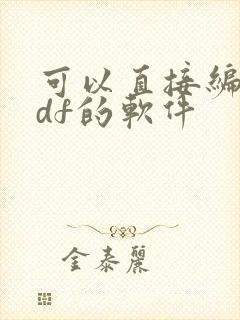 可以直接编
df的软件
金泰丽